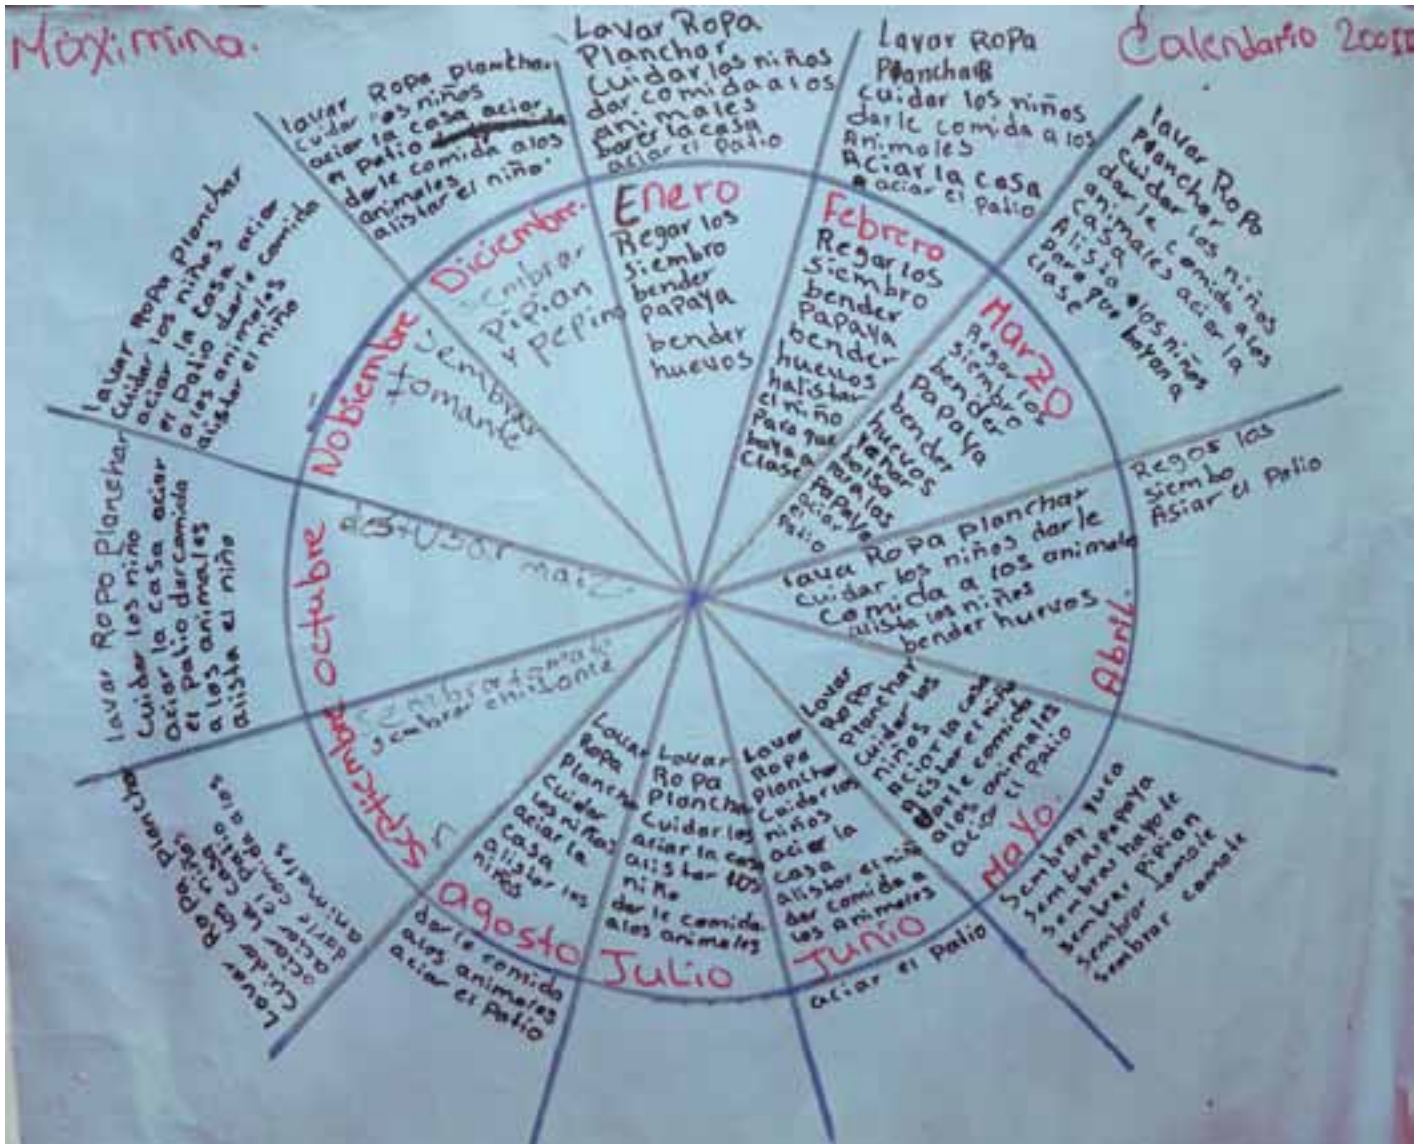 Maximina.
Calendario
Lavar Ropa
Planchar
Cuidar los niños
dar comida a los
animales
barer la casa
aciar el patio
Enero
Regar los
siembro
bender
papaya
bender
huevos
Lavar Ropa
Planchar
cuidar los niños
darle comida a los
Animales
Aciar la casa
aciar el patio
Febrero
Regar los
siembro
bender
Papaya
bender
huevos
halistar
el niño
Para que
baya a
Clase
aciar
el
Patio
lavar Ropa
planchar
cuidar los niños
darle comida a los
animales aciar la
casa
Alista los niños
para que bayan a
clase
Marzo
Regar los
siembro
bender
Papaya
bender
huevos
bolsa
para los
papaya
Regos los
siembo
Asiar el patio
lava Ropa planchar
cuidar los niños darle
comida a los animale
alista los niños
bender huevos
Abril.
Lavar
Ropa
planchar
cuidar los
niños
aciar la casa
alistar el niño
darle comida
alos animales
aciar el patio
Mayo.
Sembray yuca
sembraspapaya
sembras hayote
sembrar pipian
sembrar tomate
sembrar camote
Lavar
Ropa
Planchar
Cuidar los
niños
aciar la
casa
alistar el niño
dar comida a
los animales
Junio
aciar el patio
Lavar
Ropa
Plancha
Cuidar los
aciar la casa
alistar los
niño
darle comida
alos animales
Julio
Lavar
Ropa
plancha
cuidar
los niños
aciar la
casa
alistar los
niños
agosto
darle comida
alos animales
aciar el patio
Lavar Ropa plancha
cuidar los niños
aciar la casa
aciar el patio
darle comida a los
animales
Septiembre
sembrar tomate
sembrar chiltoma
lavar Ropo planchar
cuidar los niño
aciar la casa aciar
el patio dar comida
a los animales
alista el niño
octubre
destusar maiz
lavar Ropa planchar
cuidar los niños
aciar la casa aciar
el patio darle comida
a los animales
alistar el niño
Nobiembre
Sembrar
tomante
lavar Ropa planchar
cuidar los niños
aciar la casa aciar
el patio
darle comida alos
animales
alistar el niño.
Diciembre.
sembrar
pipian
y pepino